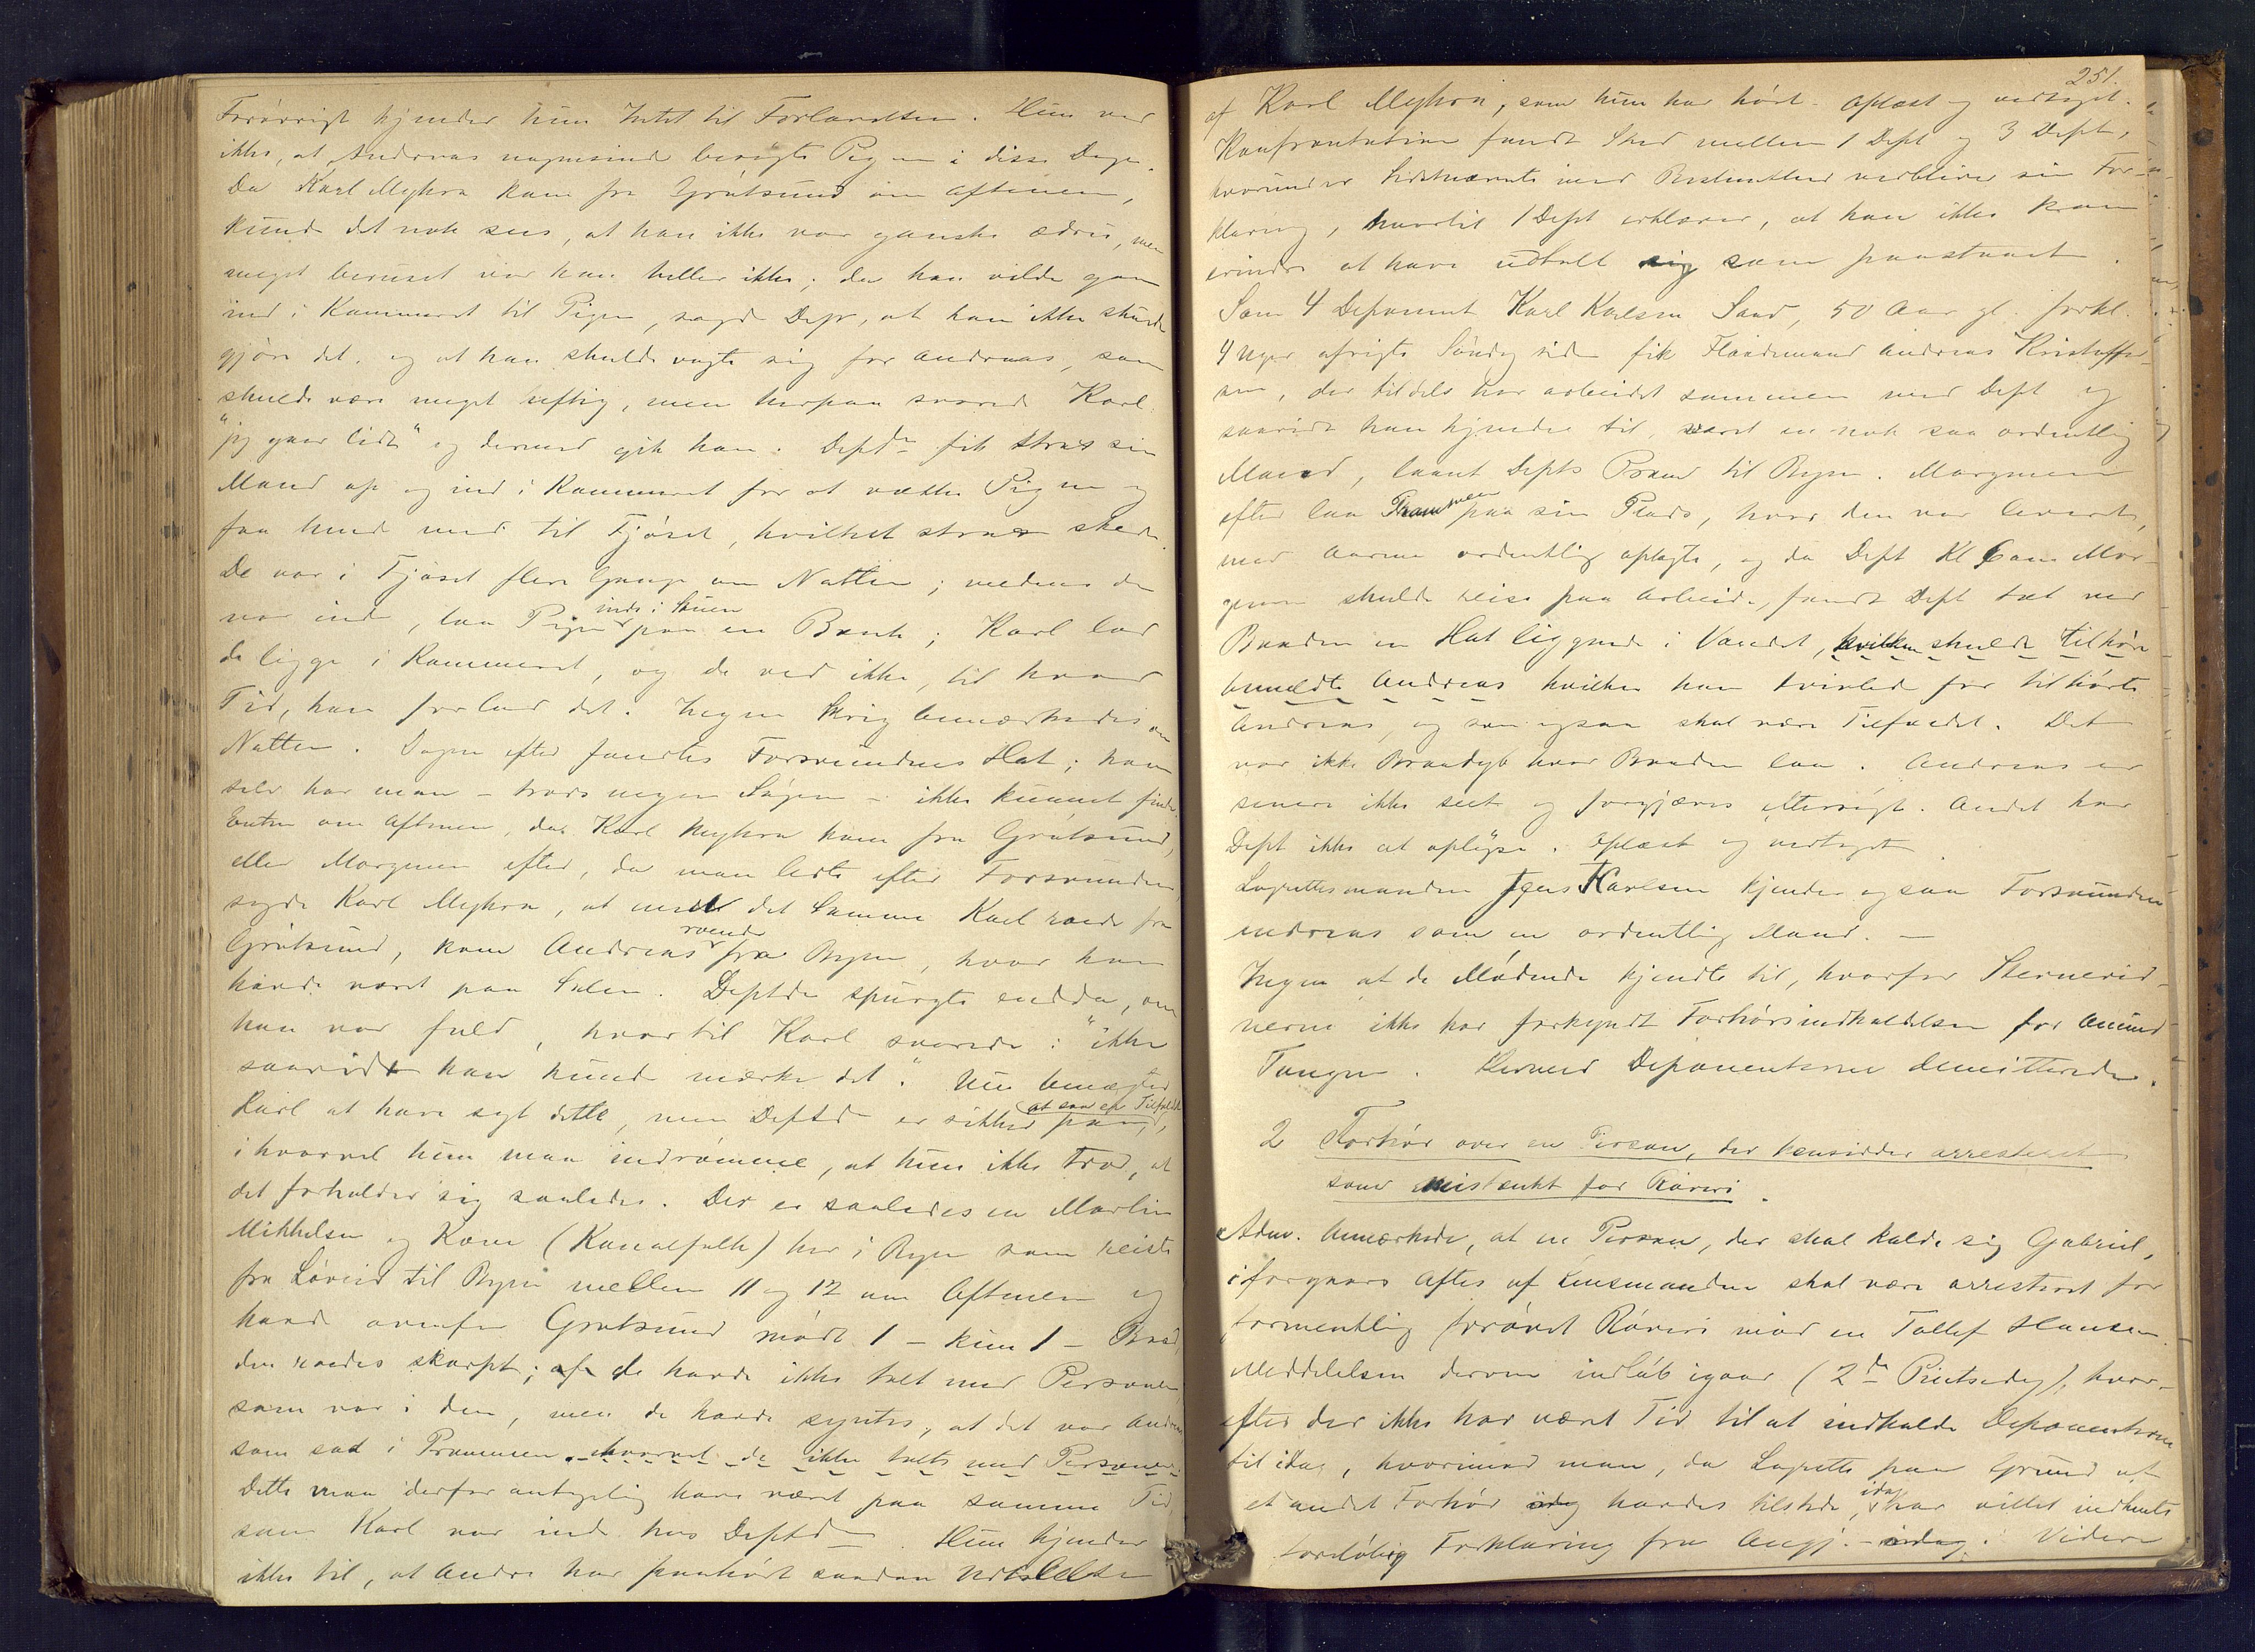 Forøvrigt kjender hun Intet til Forlandelsen. Hun ved
ikke, at Andreas nogensinde besøgte Pigen i disse Dage.
Da Karl Myhra kom fra Grubsund om Aftenen,
kunde det nok sees, at han ikke var ganske ædru, men
meget beruset var han heller ikke; da han vilde gaa
ind i Kammeret til Pigen, sagde Dept, at han ikke skulde
gjøre det, og at han skulde vogte sig for Andreas, som
skulde være meget heftig, men herpaa svarede Karl
"jeg gaar lidt" og dermed gik han. Deptd fik strax sin
Mand op og ind i Kammeret for at vække Pigen og
faa hende med til Fjøset, hvilket strax skede.
De var i Fjøset flere Gange om Natten; medens de
var inde, laa Pigen inde i Stuen paa en Bænk; Karl lod
de ligge i Kammeret, og de ved ikke, til hvad
Tid, han forlod det. Ingen Skrig bemærkedes om
Natten. Dagen efter fandtes Forsvundnes Hat; ham
selv har man – trods megen Søgen – ikke kunnet finde.
Enten om Aftenen, da Karl Myhra kom fra Grubsund,
eller Morgenen efter, da man ledte efter Forsvundne,
sagde Karl Myhra, at med det Samme Karl roede fra
Grubsund, kom Andreas roende fra Byen, hvor han
havde været paa Salen. Deptd spurgte endda, om
han var fuld, hvortil Karl svarede: "ikke
saavidt han kunde mærke det". Nu benægter
Karl at have sagt dette, men Deptd er sikker paa, at saa er Tilfældet,
ihvorvel hun maa indrømme, at hun ikke tror, at
det forholder sig saaledes. Der er saaledes en Martin
Mikkelsen og Kone (Kanalfolk) her i Byen som reiste
fra Løveid til Byen mellem 11 og 12 om Aftenen og
havde ovenfor Grubsund mødt 1 – kun 1 – Baad,
den roedes skarpt; de havde ikke talt med Personen
som var i den, men de havde syntes, at det var Andreas
som sad i Prammen, ihvorvel de ikke talte med Personen.
Dette maa derfor antagelig have været paa samme Tid
som Karl var inde hos Deptd. Hun kjender
ikke til, at Andre har paahørt saadan Udtalelse
251.
af Karl Myhra, som hun har hørt. Oplæst og vedtaget.
Konfrontation fandt Sted mellem 1 Dept og 3 Dept,
hvorunder Sidstnævnte med Bestemthed vedbliver sin For-
klaring, hvortil 1 Dept erklærer, at han ikke kan
erindre at have udtalt sig som paastaaet.
Som 4 Deponent Karl Karlsen Sand, 50 Aar gl. forkl.
4 Uger afvigte Søndag siden fik Flaademand Andreas Kristoffer-
sen, der tildels har arbeidet sammen med Dept og
saavidt han kjender til, været en nok saa ordentlig
Mand, laant Depts Pram til Byen. Morgenen
efter laa Prammen paa sin Plads, hvor den var leveret,
med Aarene ordentlig oplagte, og da Dept Kl 6 om Mor-
genen skulde reise paa Arbeide, fandt Dept tæt ved
Baaden en Hat liggende i Vandet, hvilken skulde tilhøre
bemeldte Andreas hvilken han tvivled for tilhørte
Andreas, og som ogsaa skal være Tilfældet. Det
var ikke Branddybt hvor Baaden laa. Andreas er
senere ikke seet og forgjæves eftersøgt. Andet har
Dept ikke at oplyse. Oplæst og vedtaget.
Lagrettesmanden Jens Karlsen kjender ogsaa Forsvundne
Andreas som en ordentlig Mand. –
Ingen af de Mødende kjendte til, hvorfor Stevnevid-
nerne ikke har forkyndt Forhørsindkaldelsen for Amund
Tangen. Hermed Deponenterne demitterede.
2 Forhør over en Person, der hensidder arresteret
som mistænkt for Røveri.
Adm. bemærkede, at en Person, der skal kalde sig Gabriel,
iforgaars Aftes af Lensmanden skal være arresteret for
formentlig forøvet Røveri mod en Tallef Hansen.
Meddelelsen derom indløb igaar (2de Pintsedag), hvor-
efter der ikke har været Tid til at indkalde Deponenterne
til idag, hvorimod man, da Lagrette paa Grund af
et andet Forhør havdes tilstede, idag har villet indhente
foreløbig Forklaring fra Angj. – idag. Videre